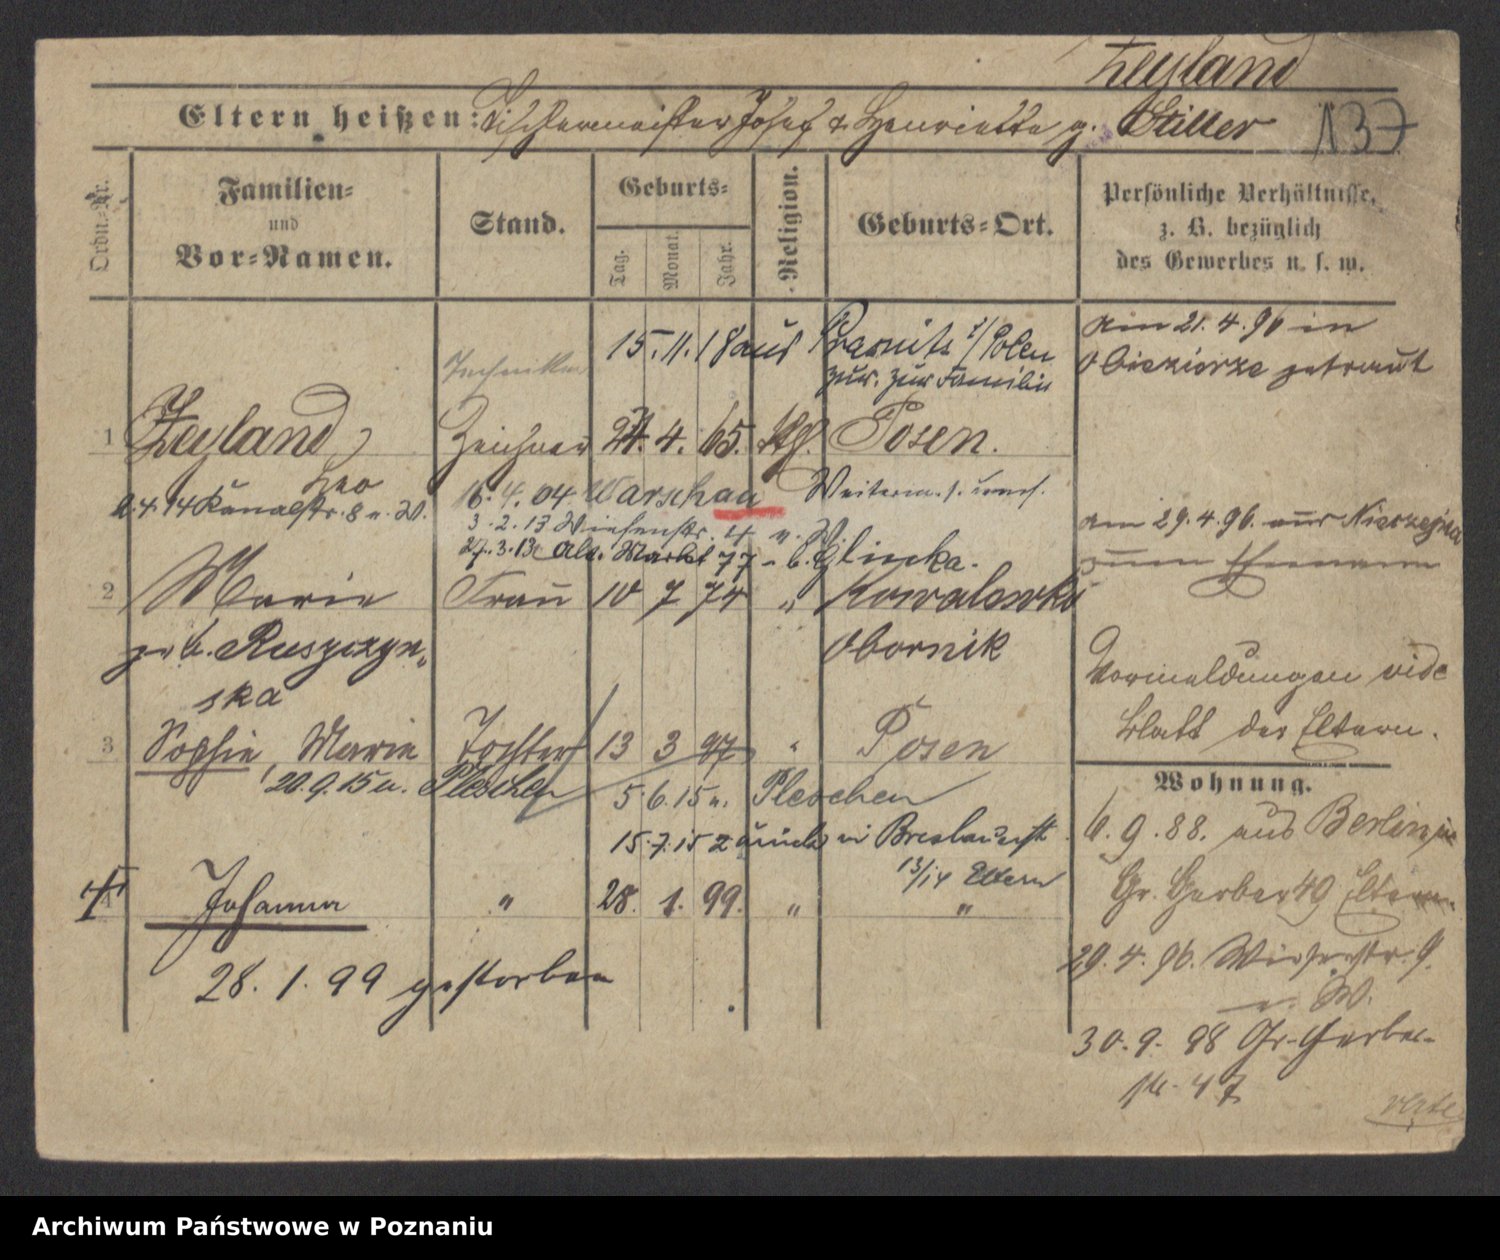 Zeyland
Eltern heißen: Tischlermeister Josef & Henriette g. Stiller 137
Ordn.-Nr.
Familien-
und
Vor-Namen.
Stand.
Geburts-
Tag.
Monat.
Jahr.
Religion.
Geburts-Ort.
Persönliche Verhältnisse,
z. B. bezüglich
des Gewerbes u. s. w.
15.11.18 aus Prasnitz i/Polen
zur. zur Familie
Techniker
1 Zeyland, Zeichner 24. 4. 65. Kth. Posen.
Leo
9.4.14 Kanalstr. 8 u. W.
16. 4. 04 Warschau
3. 2. 13 Wiesenstr. 4 u. W.
27.3.13 Alt. Markt 77 u. b. Glinka.
2 Marie Frau 10 7 74 " Kowalowko
geb. Ruszczyn-
ska
Obornik
3 Sophie, Marie Tochter 13 3 97 " Posen
20.9.15 u. Pleschen
5.6.15 u. Pleschen
15.7.15 zurück v. Breslauerstr.
13/14 Eltern
4 Johanna " 28. 1. 99. " "
28. 1. 99 gestorben
am 21. 4. 96 in
Obiezierze getraut
am 29.4.96. aus
zum Ehemann
Vormeldungen vide
Blatt der Eltern.
Wohnung.
6. 9. 88. aus Berlin
Gr. Gerber 49 Eltern.
29. 4. 96. Wiesenstr. 9.
u. W.
30. 9. 98 Gr. Gerber-
str. 47
verte
Archiwum Państwowe w Poznaniu